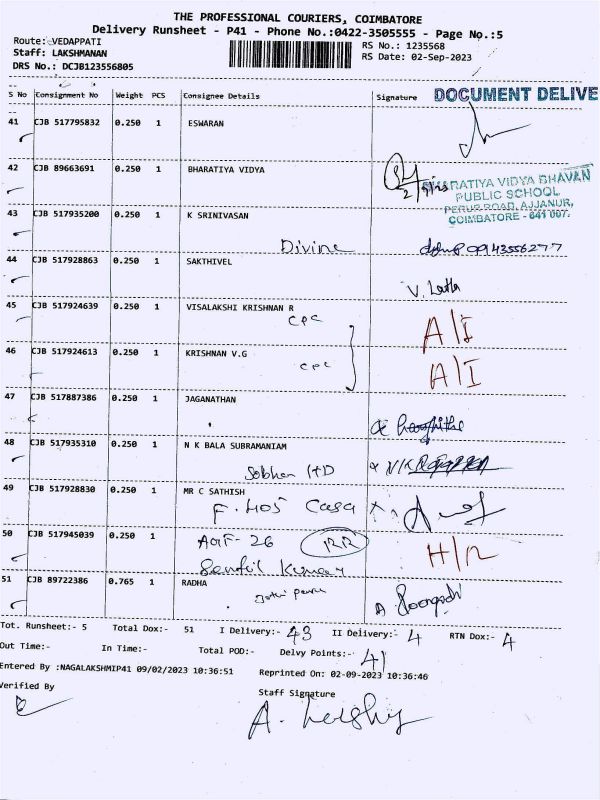 THE PROFESSIONAL COURIERS, COIMBATORE
Delivery Runsheet - P41 - Phone No.:0422-3505555 - Page No.:5
Route: VEDAPPATI
RS No.: 1235568
Staff: LAKSHMANAN
RS Date: 02-Sep-2023
DRS No.: DCJB123556805
S No Consignment No Weight PCS Consignee Details Signature DOCUMENT DELIVE
41 CJB 517795832 0.250 1 ESWARAN
42 CJB 89663691 0.250 1 BHARATIYA VIDYA
BHARATIYA VIDYA BHAVAN
PUBLIC SCHOOL
PERUR ROAD, AJJANUR,
COIMBATORE - 641 007.
43 CJB 517935200 0.250 1 K SRINIVASAN
Divine
44 CJB 517928863 0.250 1 SAKTHIVEL
V. Latha
45 CJB 517924639 0.250 1 VISALAKSHI KRISHNAN R
CPC A/I
46 CJB 517924613 0.250 1 KRISHNAN V.G
CPC A/I
47 CJB 517887386 0.250 1 JAGANATHAN
48 CJB 517935310 0.250 1 N K BALA SUBRAMANIAM
49 CJB 517928830 0.250 1 MR C SATHISH
F. 405 Casa
50 CJB 517945039 0.250 1 RR
Senthil Kumar
51 CJB 89722386 0.765 1 RADHA
Tot. Runsheet:- 5 Total Dox:- 51 I Delivery:- 43 II Delivery:- 4 RTN Dox:- 4
Out Time:- In Time:- Total POD:- Delvy Points:- 41
Entered By :NAGALAKSHMIP41 09/02/2023 10:36:51 Reprinted On: 02-09-2023 10:36:46
Verified By
Staff Signature